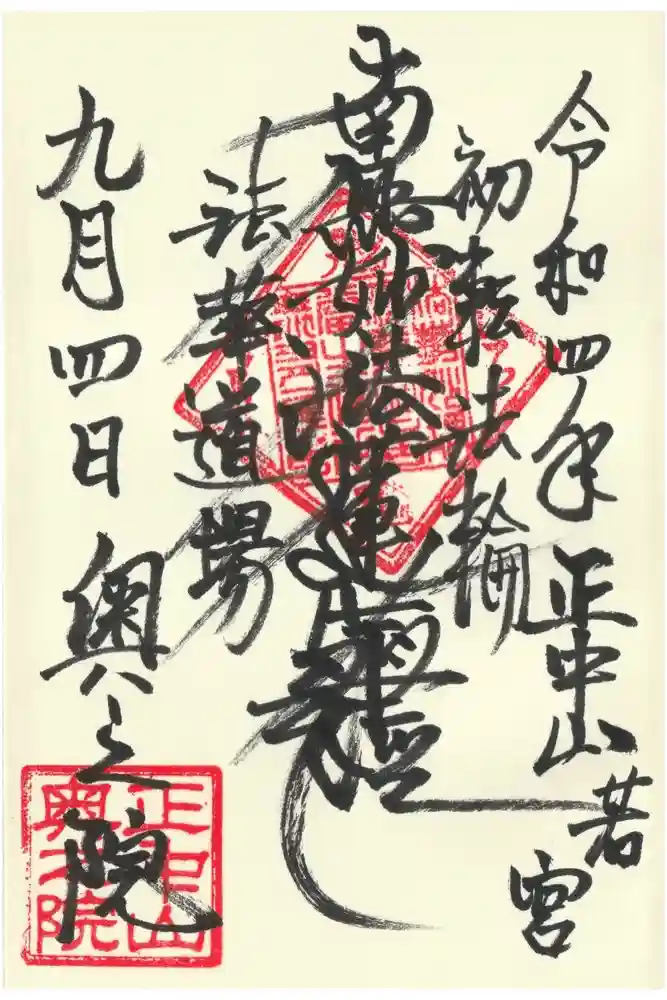 令和四年 正中山
若宮
初転法輪
南無妙法蓮華経
法華道場
九月四日 奥之院
正中山
奥之院